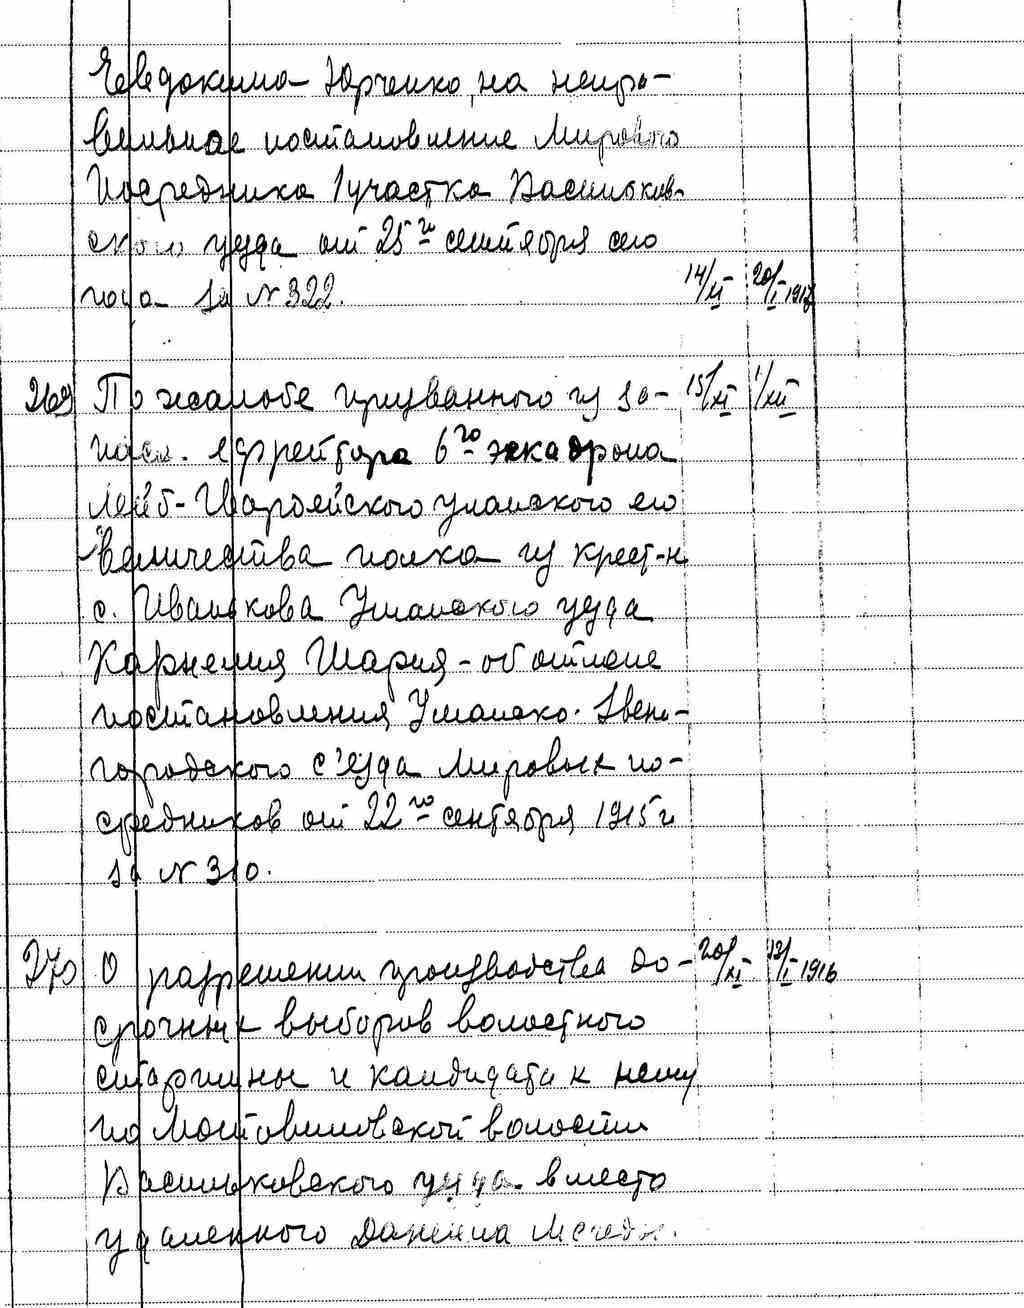 Евдокима Юрченко, на непра-
вильное постановление Мирового
Посредника 1 участка Васильков-
ского уезда от 25го сентября сего
года за N 322. 14/XI 20/I 1917
269 По жалобе призванного из за- 15/XI 1/XII
паса ефрейтора 6го эскадрона
Лейб-Гвардейского уланского его
величества полка из крест-н
с. Иванькова Уманского уезда
Карнелия Шария - об отмене
постановления Уманско-Звени-
городского с'езда Мировых по-
средников от 22го сентября 1915 г
за N 310.
270 О разрешении производства до- 20/XI 12/I 1916
срочных выборов волостного
старшины и кандидата к нему
по Мотовиловской волости
Васильковского уезда вместо
удаленного Даниила